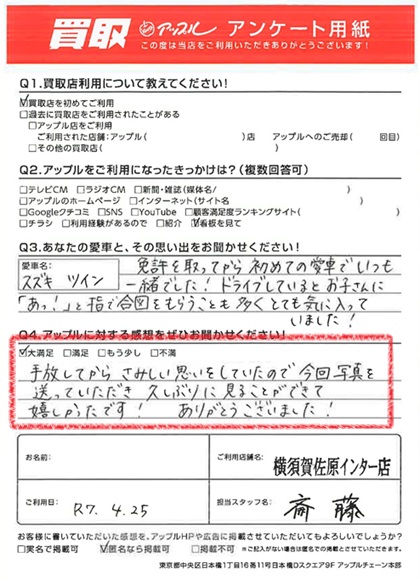 買取 アップル アンケート用紙
この度は当店をご利用いただきありがとうございます!
Q1.買取店利用について教えてください!
☑買取店を初めてご利用
□過去に買取店をご利用されたことがある
□アップル店をご利用
ご利用された店舗:アップル( )店 アップルへのご売却( 回目)
□その他の買取店( )
Q2.アップルをご利用になったきっかけは?(複数回答可)
□テレビCM □ラジオCM □新聞・雑誌(媒体名/ )
□アップルのホームページ □インターネット(サイト名 )
□Googleクチコミ □SNS □YouTube □顧客満足度ランキングサイト( )
□チラシ □利用経験があるので □紹介 ☑看板を見て
Q3.あなたの愛車と、その思い出をお聞かせください!
愛車名:
スズキ ツイン
免許を取ってから初めての愛車でいつも
一緒でした!ドライブしているとお子さんに
「あっ!」と指で合図をもらうことも多くとても気に入って
いました!
Q4.アップルに対する感想をぜひお聞かせください!
☑大満足 □満足 □もう少し □不満
手放してからさみしい思いをしていたので今回写真を
送っていただき 久しぶりに見ることができて
嬉しかったです! ありがとうございました!
お名前:
ご利用店舗名:
横須賀佐原インター店
ご利用日:
R7.4.25
担当スタッフ名:
斎藤
お客様に書いていただいた感想を、アップルHPや広告に掲載させていただいてもよろしいでしょうか?
□実名で掲載可 ☑匿名なら掲載可 □掲載不可 ※ご記入がない場合は匿名での掲載とさせていただきます。
東京都中央区日本橋1丁目16番11号日本橋Dスクエア9F アップルチェーン本部